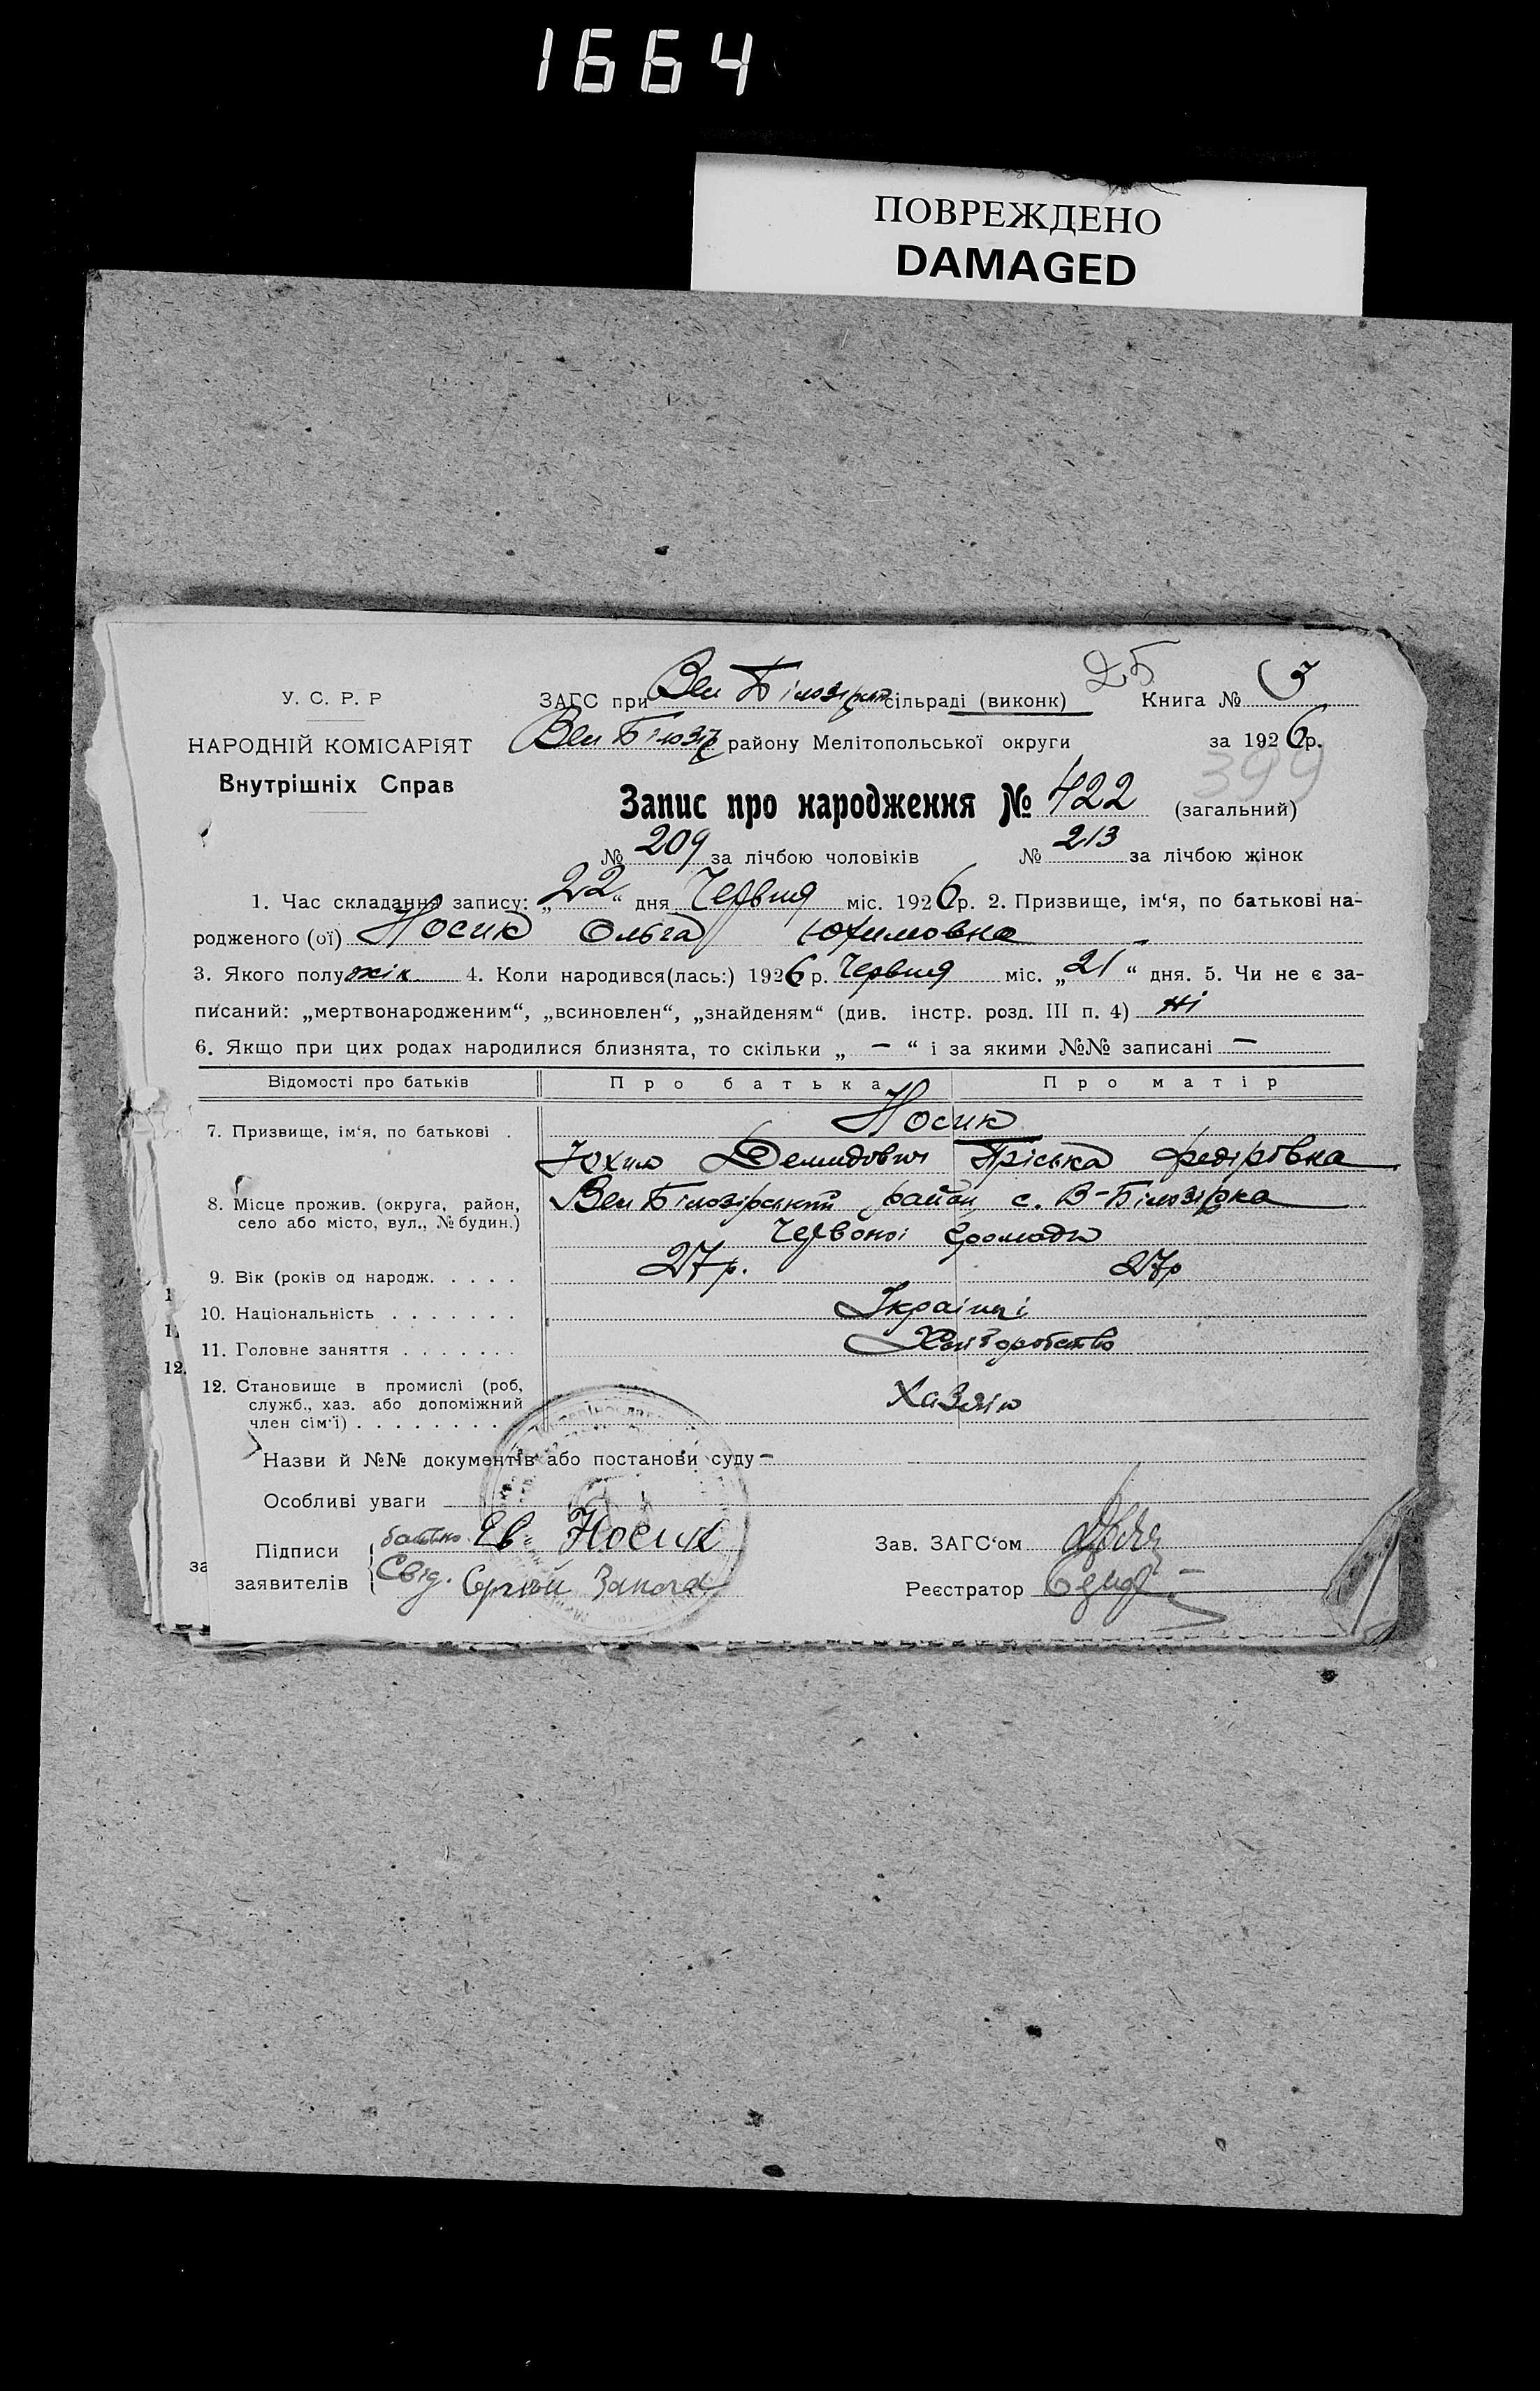 1664
ПОВРЕЖДЕНО
DAMAGED
25
У. С. Р. Р
ЗАГС при Вел Білозірк сільраді (виконк) Книга № 3
НАРОДНІЙ КОМІСАРІЯТ
Вел Білозір району Мелітопольської округи за 1926р.
Внутрішніх Справ
399
Запис про народження № 422 (загальний)
№ 209 за лічбою чоловіків № 213 за лічбою жінок
1. Час складання запису: „22“ дня Червня міс. 1926р. 2. Призвище, ім‘я, по батькові на-
родженого (ої) Носик Ольга Юхимовна
3. Якого полу жін 4. Коли народився(лась:) 1926р. Червня міс. „21“ дня. 5. Чи не є за-
писаний: „мертвонародженим“, „всиновлен“, „знайденям“ (див. інстр. розд. III п. 4) ні
6. Якщо при цих родах народилися близнята, то скільки „ — “ і за якими №№ записані —
Відомості про батьків Про батька Про матір
7. Призвище, ім‘я, по батькові . Носик
Юхим Демидович Пріська Федіровна
8. Місце прожив. (округа, район, село або місто, вул., № будин.) Вел Білозірський район, с. В-Білозірка
Червоної Громади
9. Вік (років од народж. . . . . 27р. 27р
10. Національність . . . . . . . Українці
11. Головне заняття . . . . . . . Хліборобство
12. Становище в промислі (роб, служб., хаз. або допоміжний член сім‘ї) . . . . . . . . Хазяїн
Назви й №№ документів або постанови суду —
Особливі уваги
Підписи заявителів батько Ев. Носик
Свід. Сергій
Зав. ЗАГС‘ом
Реєстратор
1
11
12.
за